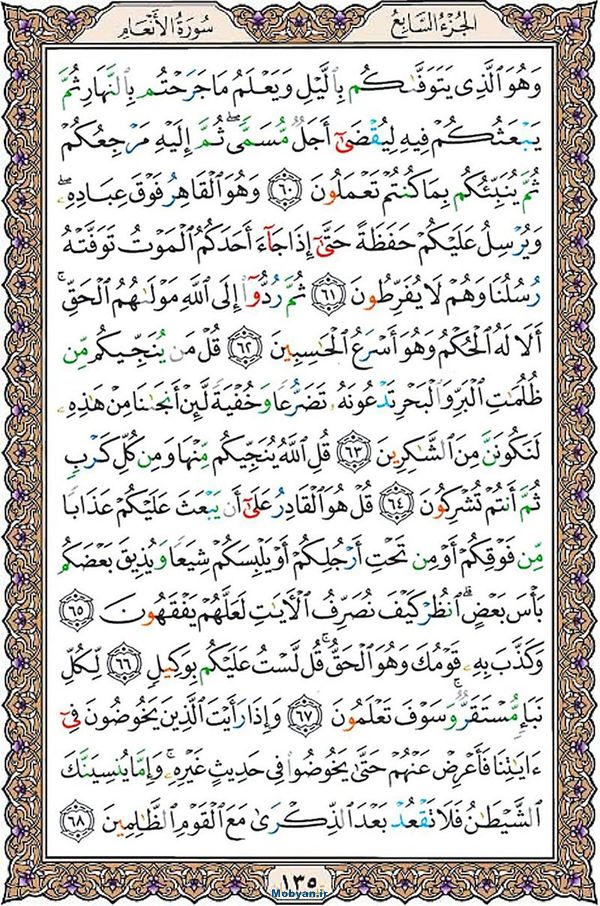 الجزء السابع
سورة الأنعام
وَهُوَ الَّذِي يَتَوَفَّىٰكُم بِالَّيْلِ وَيَعْلَمُ مَا جَرَحْتُم بِالنَّهَارِ ثُمَّ
يَبْعَثُكُمْ فِيهِ لِيُقْضَىٰٓ أَجَلٌ مُّسَمًّى ۖ ثُمَّ إِلَيْهِ مَرْجِعُكُمْ
ثُمَّ يُنَبِّئُكُم بِمَا كُنتُمْ تَعْمَلُونَ ٦٠ وَهُوَ الْقَاهِرُ فَوْقَ عِبَادِهِ ۖ
وَيُرْسِلُ عَلَيْكُمْ حَفَظَةً حَتَّىٰٓ إِذَا جَآءَ أَحَدَكُمُ الْمَوْتُ تَوَفَّتْهُ
رُسُلُنَا وَهُمْ لَا يُفَرِّطُونَ ٦١ ثُمَّ رُدُّوٓا إِلَى اللَّهِ مَوْلَىٰهُمُ الْحَقِّ ۚ
أَلَا لَهُ الْحُكْمُ وَهُوَ أَسْرَعُ الْحَاسِبِينَ ٦٢ قُلْ مَن يُنَجِّيكُم مِّن
ظُلُمَاتِ الْبَرِّ وَالْبَحْرِ تَدْعُونَهُ تَضَرُّعًا وَخُفْيَةً لَّئِنْ أَنجَىٰنَا مِنْ هَٰذِهِ
لَنَكُونَنَّ مِنَ الشَّاكِرِينَ ٦٣ قُلِ اللَّهُ يُنَجِّيكُم مِّنْهَا وَمِن كُلِّ كَرْبٍ
ثُمَّ أَنتُمْ تُشْرِكُونَ ٦٤ قُلْ هُوَ الْقَادِرُ عَلَىٰٓ أَن يَبْعَثَ عَلَيْكُمْ عَذَابًا
مِّن فَوْقِكُمْ أَوْ مِن تَحْتِ أَرْجُلِكُمْ أَوْ يَلْبِسَكُمْ شِيَعًا وَيُذِيقَ بَعْضَكُم
بَأْسَ بَعْضٍ ۗ انظُرْ كَيْفَ نُصَرِّفُ الْآيَاتِ لَعَلَّهُمْ يَفْقَهُونَ ٦٥
وَكَذَّبَ بِهِ قَوْمُكَ وَهُوَ الْحَقُّ ۚ قُل لَّسْتُ عَلَيْكُم بِوَكِيلٍ ٦٦ لِّكُلِّ
نَبَإٍ مُّسْتَقَرٌّ ۚ وَسَوْفَ تَعْلَمُونَ ٦٧ وَإِذَا رَأَيْتَ الَّذِينَ يَخُوضُونَ فِيٓ
ءَايَٰتِنَا فَأَعْرِضْ عَنْهُمْ حَتَّىٰ يَخُوضُوا فِي حَدِيثٍ غَيْرِهِ ۚ وَإِمَّا يُنسِيَنَّكَ
الشَّيْطَٰنُ فَلَا تَقْعُدْ بَعْدَ الذِّكْرَىٰ مَعَ الْقَوْمِ الظَّٰلِمِينَ ٦٨
١٣٥
Mobyan.ir